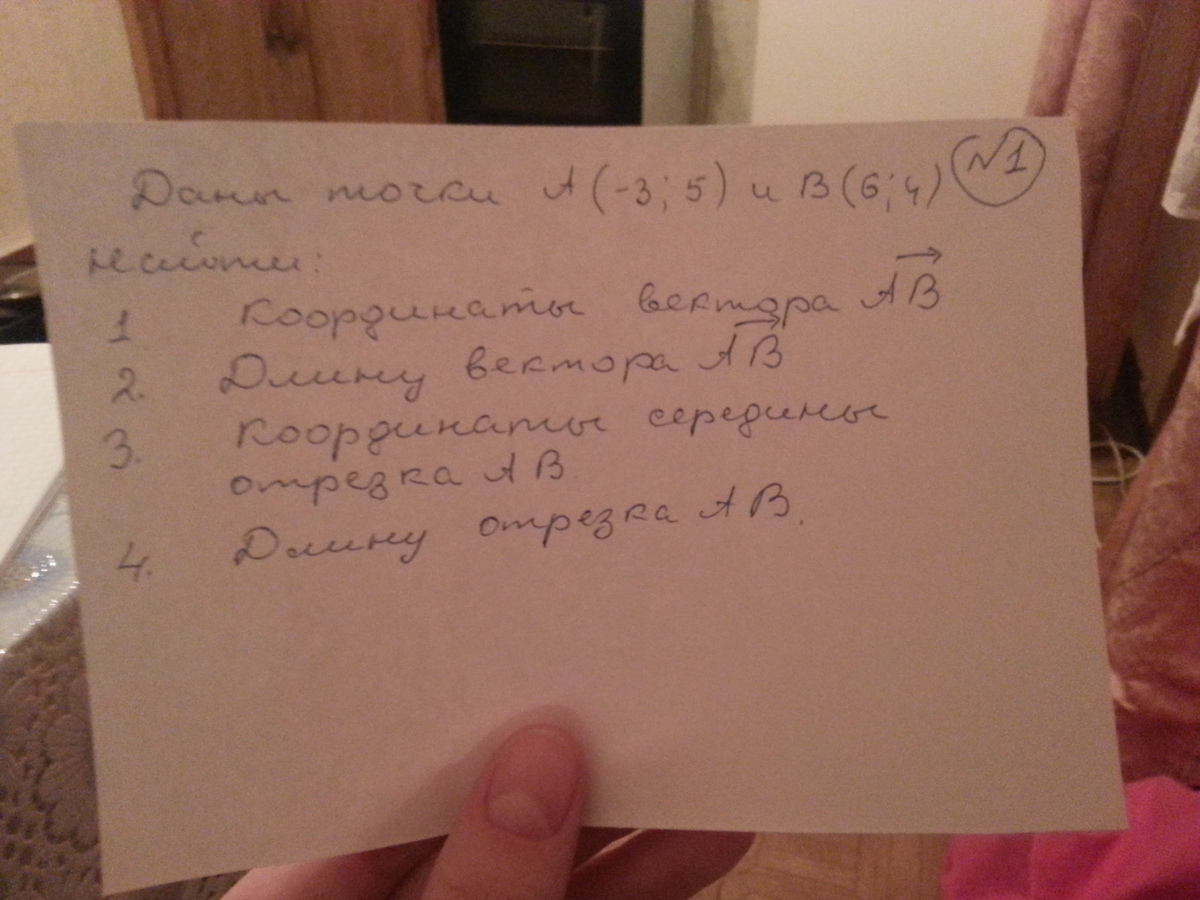 Даны точки А (-3; 5) и В (6; 4) №1
Найти:
1 Координаты вектора АВ
2. Длину вектора АВ
3. Координаты середины
отрезка АВ.
4. Длину отрезка АВ.